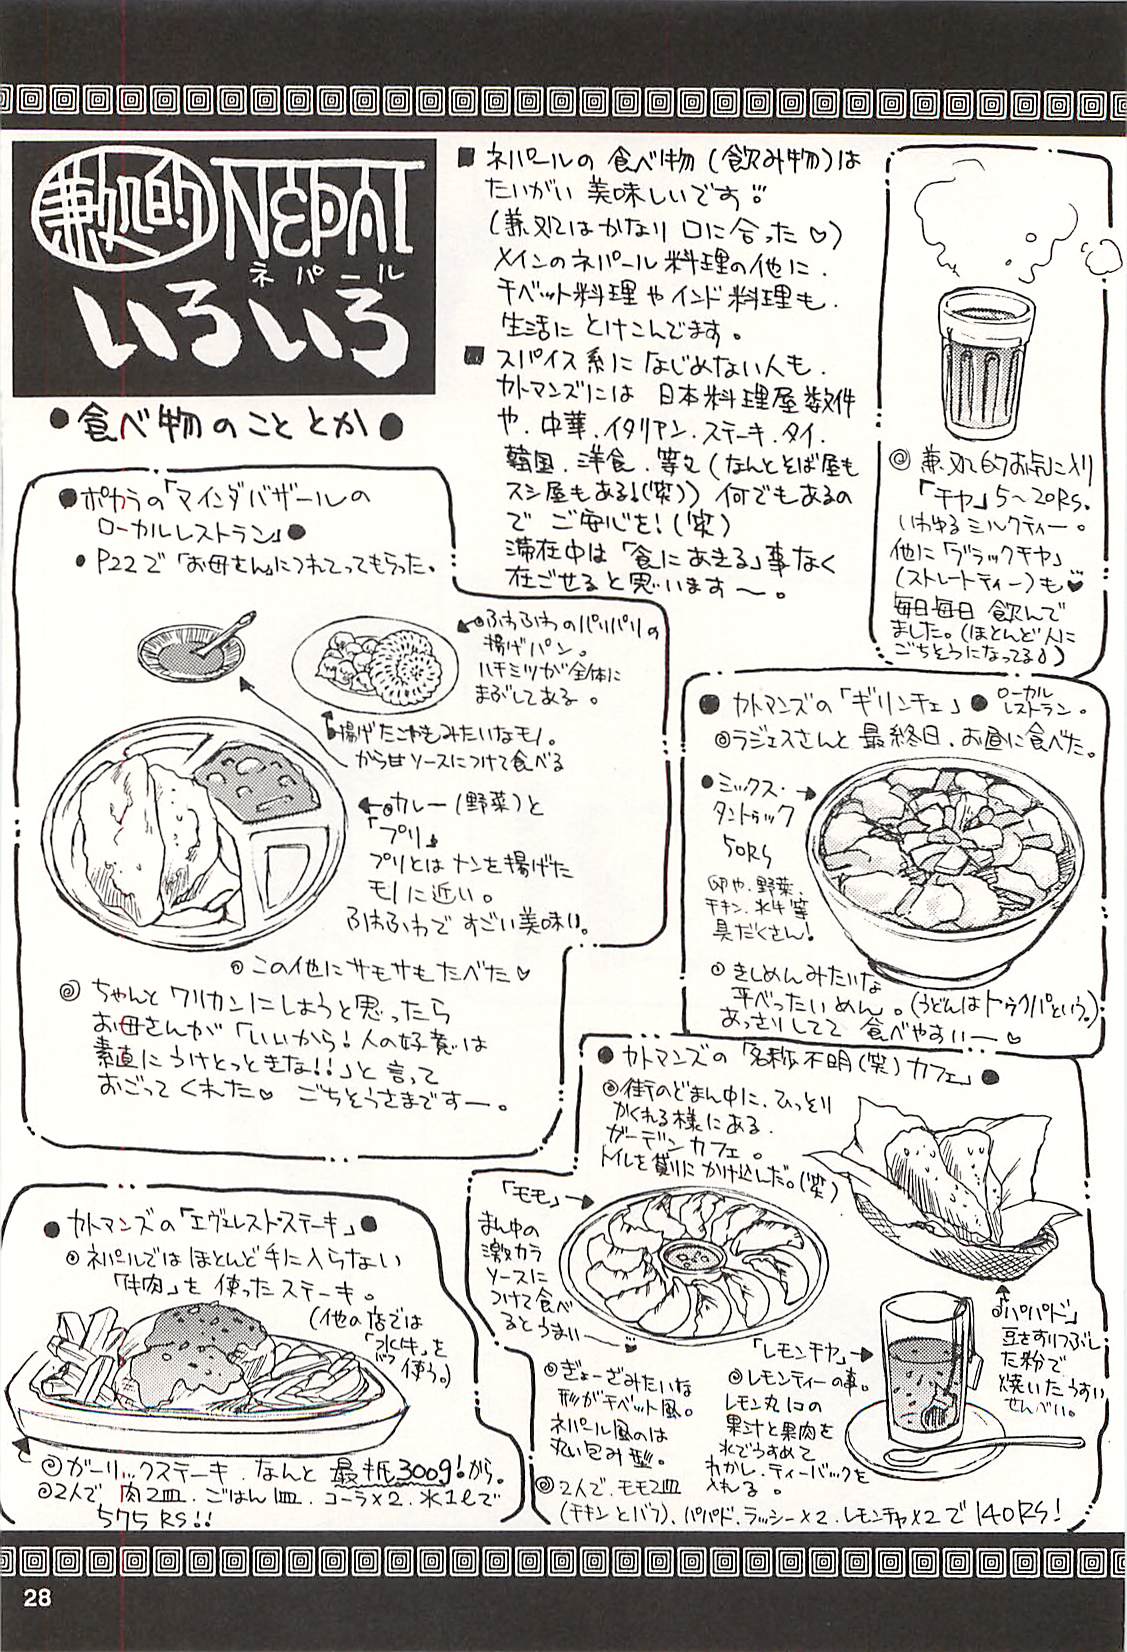 兼処的 NEPAL
ネパール
いろいろ
●食べ物のこととか●
■ネパールの食べ物(飲み物)は
たいがい美味しいです!!
(兼処はかなり口に合った♡)
メインのネパール料理の他に、
チベット料理やインド料理も、
生活にとけこんでます。
■スパイス系になじめない人も、
カトマンズには日本料理屋数件
や、中華、イタリアン、ステーキ、タイ、
韓国、洋食、等々(なんとそば屋も
スシ屋もある!(笑))何でもあるの
でご安心を!(笑)
滞在中は「食にあきる」事なく
在ごせると思います〜。
◎兼処的お気に入り
「チヤ」5〜20RS.
いわゆるミルクティー。
他に「ブラックチヤ」
(ストレートティー)も♥
毎日毎日飲んで
ました。(ほとんど人に
ごちそうになってる♪)
●ポカラの「マインダバザールの
ローカルレストラン」●
・P22で「お母さん」につれてってもらった。
◎ふわふわのパリパリの
揚げパン。
ハチミツが全体に
まぶしてある。
揚げたこやきみたいなモノ。
から甘ソースにつけて食べる
◎カレー(野菜)と
「プリ」
プリとはナンを揚げた
モノに近い。
ふわふわですごい美味い。
◎この他にサモサもたべた♡
◎ちゃんとワリカンにしようと思ったら
お母さんが「いいから!人の好意は
素直にうけとっときな!!」と言って
おごってくれた♡ ごちそうさまですー。
●カトマンズの「ギリンチェ」● ローカル
レストラン。
◎ラジェスさんと最終日、お昼に食べた。
●ミックス・
タントゥック
50RS
卵や、野菜、
チキン、水牛等
具だくさん!
◎きしめんみたいな
平べったいめん。(うどんはトゥクパという。)
あっさりしてて食べやすいー♡
●カトマンズの「名称不明(笑)カフェ」●
◎街のどまん中に、ひっそり
かくれる様にある
ガーデンカフェ。
トイレを借りにかけ込んだ。(笑)
「モモ」→
まん中の
激カラ
ソースに
つけて食べ
るとうまい〜♥
◎ぎょーざみたいな
形がチベット風。
ネパール風のは
丸い包み型。
「レモンチヤ」→
◎レモンティーの事。
レモン丸1コの
果汁と果肉を
水でうすめて
わかし、ティーバックを
入れる。
◎「パパド」
豆をすりつぶし
た粉で
焼いたうすい
せんべい。
◎2人で、モモ2皿
(チキンとバフ)、パパド、ラッシー×2、レモンチヤ×2で140RS!
●カトマンズの「エヴェレストステーキ」●
◎ネパールではほとんど手に入らない
「牛肉」を使ったステーキ。
(他の店では
「水牛」を
バフ
使う。)
◎ガーリックステーキ、なんと最低300g!から。
◎2人で肉2皿、ごはん1皿、コーラ×2、水1ℓで
575RS!!
28